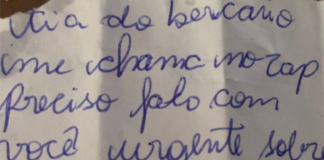 Tia do bercario
ime chama no zap
Preciso falo com
você urgente sobre